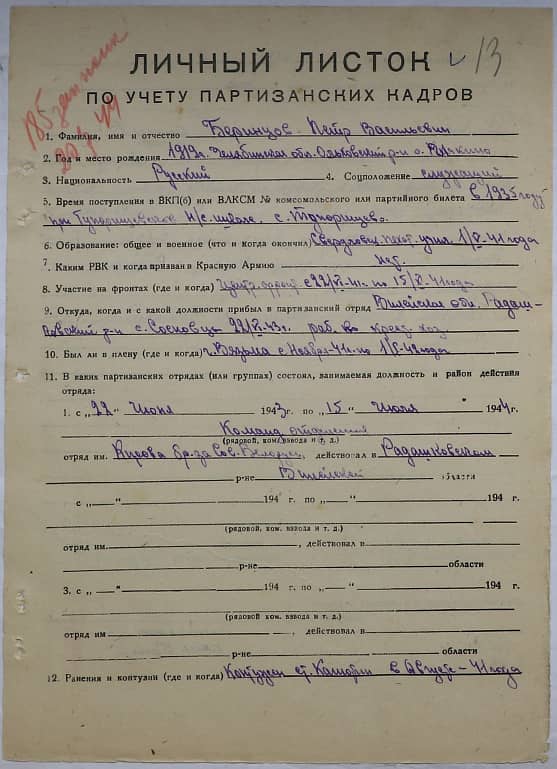 185 зап полк
ЛИЧНЫЙ ЛИСТОК 13
ПО УЧЕТУ ПАРТИЗАНСКИХ КАДРОВ
1. Фамилия, имя и отчество Беринцов Петр Васильевич
2. Год и место рождения 1919г. Челябинская обл. р-н с.
3. Национальность Русский 4. Соцположение служащий
5. Время поступления в ВКП(б) или ВЛКСМ № комсомольского или партийного билета в 1935 году
при н/с. школе с.
6. Образование: общее и военное (кто и когда окончил) Свердловск. пехот. учил. 41 года
7. Каким РВК и когда призван в Красную Армию нет
8. Участие на фронтах (где и когда) Центр. фронт с 22/ 41г. по 15/ 41 года
9. Откуда, когда и с какой должности прибыл в партизанский отряд Вилейская обл. Радаш-
ковский р-н с. 22/ 43г. раб. в крест. хоз.
10. Был ли в плену (где и когда) г. Вязьма с Ноября 41г. по 42 года
11. В каких партизанских отрядах (или группах) состоял, занимаемая должность и район действия
отряда:
1. с „22“ Июня 1943г. по „15“ Июля 1944г.
Команд отделения
(рядовой, ком. взвода и т. д.)
отряд им. Кирова бр. за Сов. Белорус, действовал в Радашковском
р-не Вилейской области
с „ “ 194 г. по „ “ 194 г.
(рядовой, ком. взвода и т. д.)
отряд им. , действовал в
р-не области
3. с „ “ 194 г. по „ “ 194 г.
(рядовой, ком. взвода и т. д.)
отряд им , действовал в
р-не области
12. Ранения и контузии (где и когда) Контужен ст. в Августе - 41 года